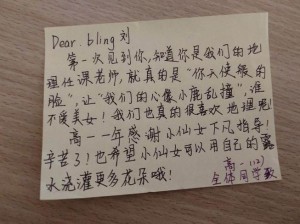 Dear. bling 刘
第一次见到你,知道你是我们的地
理任课老师,就真的是“你天使般的
脸”,让“我们的心像小鹿乱撞”,谁
不爱美女!我们也真的很喜欢地理呢!
高一一年感谢小仙女下凡指导!
辛苦了!也希望小仙女可以用自己的露
水浇灌更多花朵哦!
高一(12)
全体同学敬